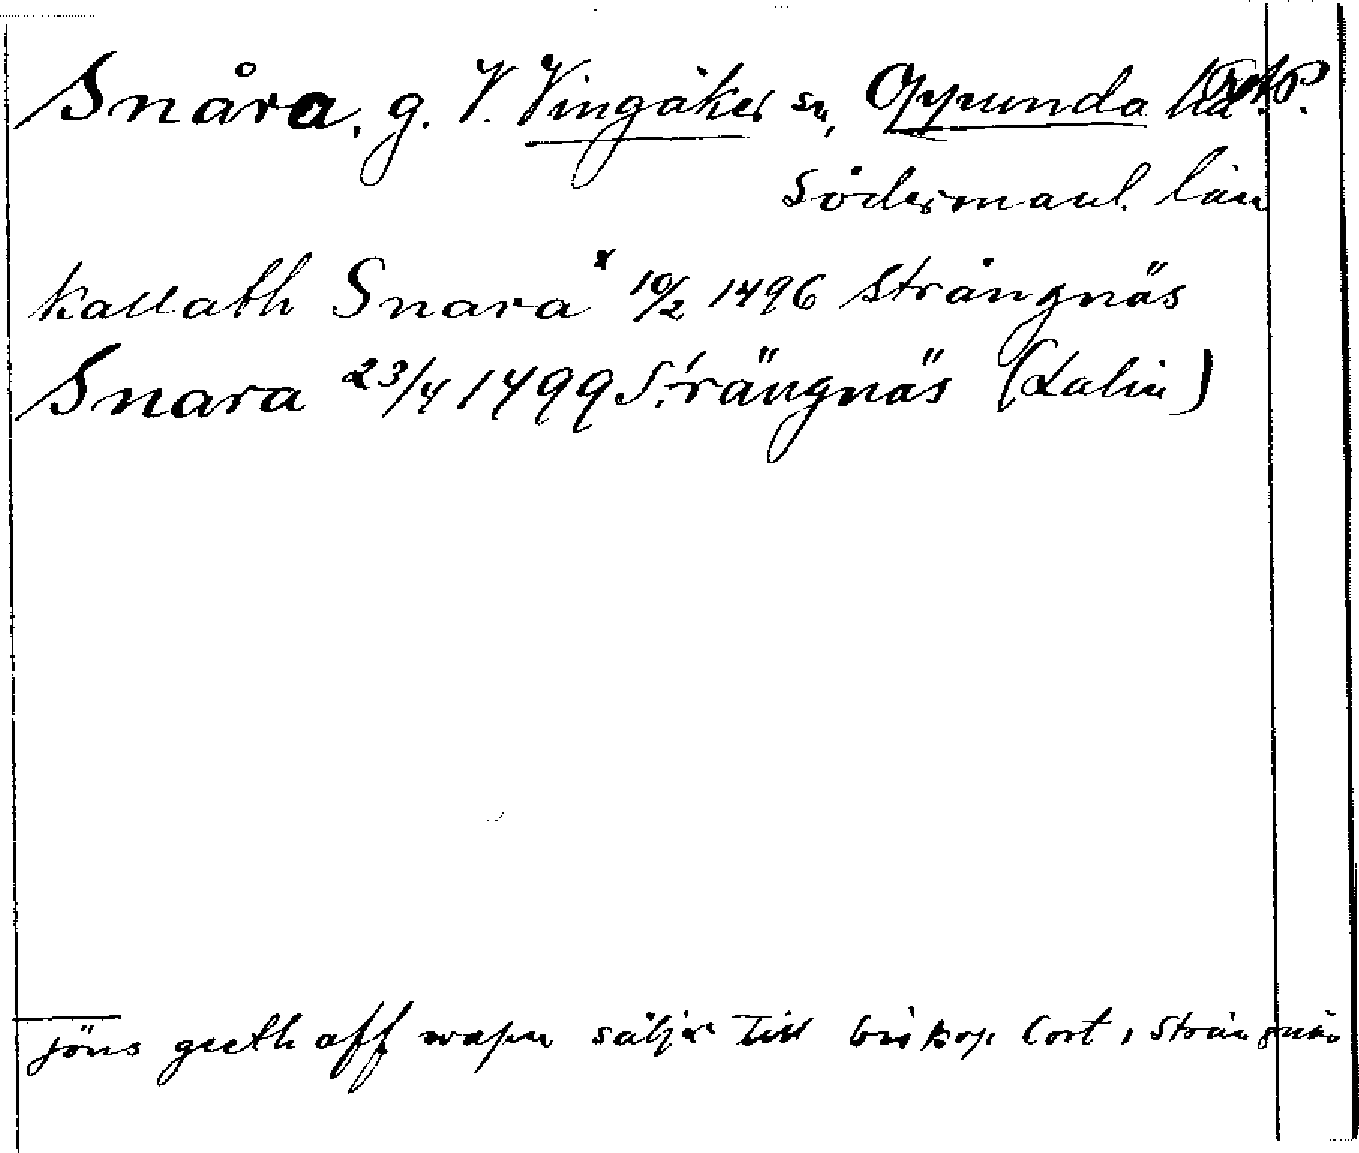 Snåra. g. V. Vingåker sn, Oppunda hd.
Södermanl. län
kallath Snara x 10/2 1496 Strängnäs
Snara 23/4 1499 Strängnäs (Latin)
jöns geeth aff wapn säljer till biskop Cort i Strängnäs